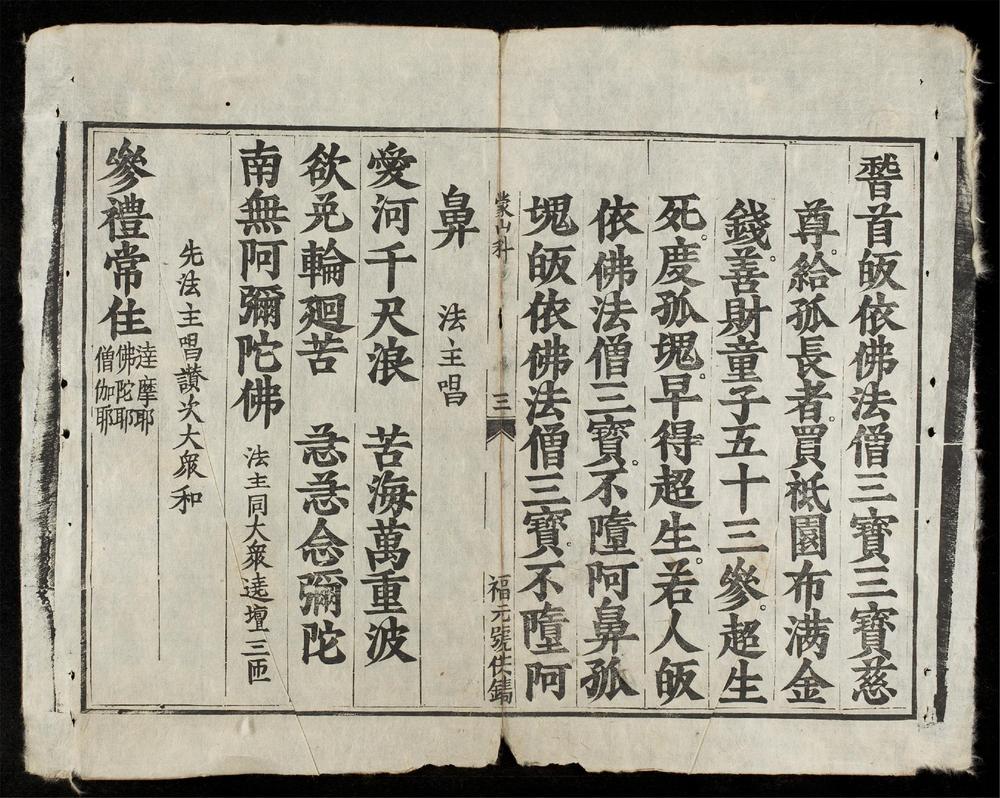 稽首皈依佛法僧三寶三寶慈
尊。給孤長者。買祇園布满金
錢。善財童子五十三參。超生
死。度孤塊。早得超生。若人皈
依佛法僧三寶。不墮阿鼻孤
塊皈依佛法僧三寶。不墮阿
蒙山科 三 福元號佚鐫
鼻 法主唱
愛河千尺浪 苦海萬重波
欲免輪廻苦 急急念彌陀
南無阿彌陀佛 法主同大衆遶壇三匝
先法主唱讚次大衆和
參禮常住 達摩耶 佛陀耶 僧伽耶